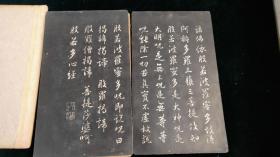 諸佛依般若波羅蜜多故得
阿耨多羅三藐三菩提故知
般若波羅蜜多是大神咒是
大明咒是無上咒是無等等
咒能除一切苦真實不虛故說
般若波羅蜜多咒即說咒曰
揭諦揭諦 般羅揭諦
般羅僧揭諦 菩提莎婆呵
般若多心經